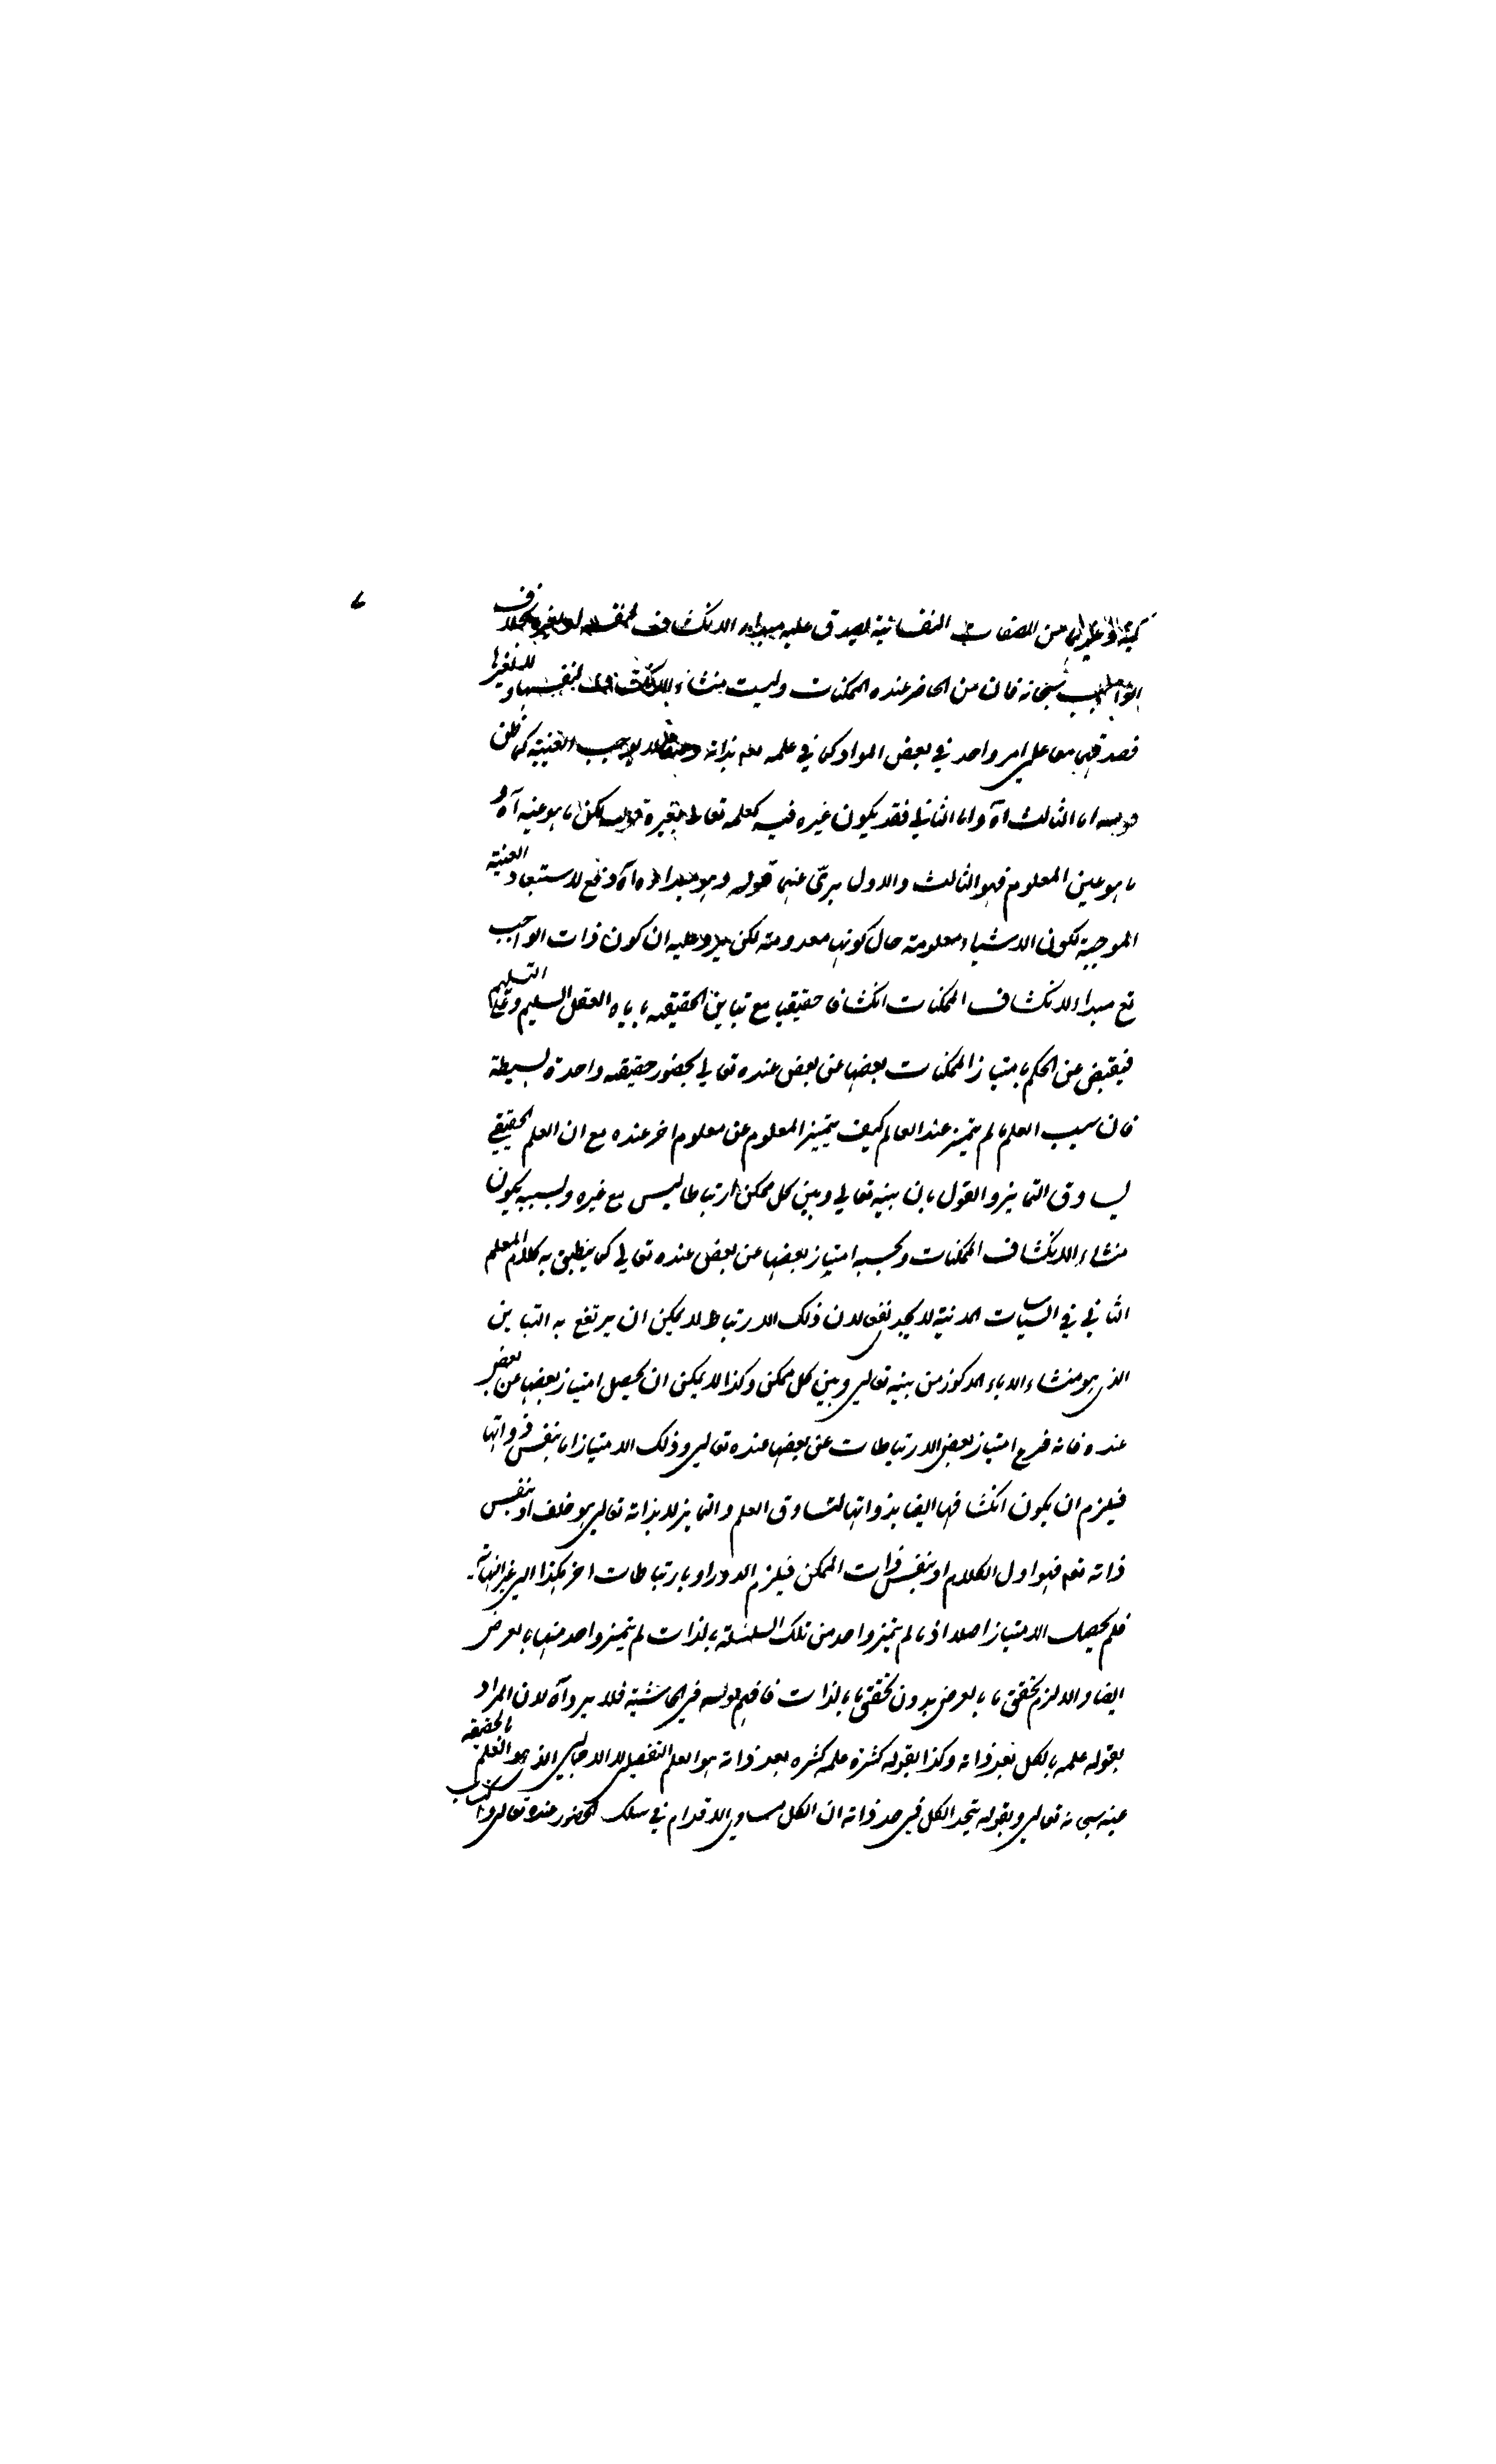 من الصفات النفسانية يصدق عليه مبداء الانكشاف بخلاف
الواجب سبحانه فان من الحاضر عنده الممكنات وليست منشاء للانكشاف لنفسها ولا لغيرها
فصدقهما معا على امر واحد في بعض المواد كما في علمه تعم بذاته لا يوجب العينية كما ظن
قوله اما الثالث آه واما الثاني فقد يكون غيره فيه كعلمه تعالى بغيره لكن ما هو عينه آه و
ما هو عين المعلوم فهو الثالث والاول مبرى عنهما قوله وهو مبداء آه دفع لاستبعاد العينية
الموجبة لكون الاشياء معلومة حال كونها معدومة لكن يرد عليه ان كون ذات الواجب
تع مبداء لانكشاف الممكنات انكشافا حقيقيا مع تباين الحقيقة ياباه العقل السليم وبعد التسليم
فيقبض عن الحكم بامتياز الممكنات بعضها عن بعض عنده تعالى بحضور حقيقة واحدة بسيطة
فان سبب العلم ما لم يتميز عند العالم كيف يتميز المعلوم عن معلوم اخر عنده مع ان العلم الحقيقي
يساوق التمايز والقول بان بينه تعالى وبين كل ممكن ارتباطا ليس مع غيره وبسببه يكون
منشاء لانكشاف الممكنات وبحسبه امتياز بعضها عن بعض عنده تعالى كما ينطبق به كلام المعلم
الثاني في السياسات المدنية لا يجد نفعا لان ذلك الارتباط لا يمكن ان يرتفع به التباين
الذي هو منشاء الاباء المذكور من بينه تعالى وبين كل ممكن وكذا لا يمكن ان يحصل امتياز بعضها عن بعض
عنده فانه فرع امتياز بعض الارتباطات عن بعضها عنده تعالى وذلك الامتياز اما بنفس ذواتها
فيلزم ان يكون انكشافها ايضا بذواتها لتساوق العلم والتمايز لا بذاته تعالى هو خلف او بنفس
ذاته تعم فهو اول الكلام او بنفس ذات الممكن فيلزم الدور او بارتباطات اخر هكذا الى غير النهاية
فلم يحصل الامتياز اصلا اذ ما لم يتميز واحد من تلك السلسلة بالذات لم يتميز واحد منها بالعرض
ايضا والا لزم تحقق ما بالعرض بدون تحقق ما بالذات فافهم قوله في الحاشية فلا يرد آه لان المراد
بقوله علمه بالكل بعد ذاته وكذا بقوله كثرة علمه كثرة بعد ذاته هو العلم التفصيلي لا الاجمالي الذي هو العلم بالحقيقة
عينه سبحانه تعالى وبقوله يتحد الكل في حد ذاته ان الكل مساوي الاقدام في سلك الحضور عنده تعالى